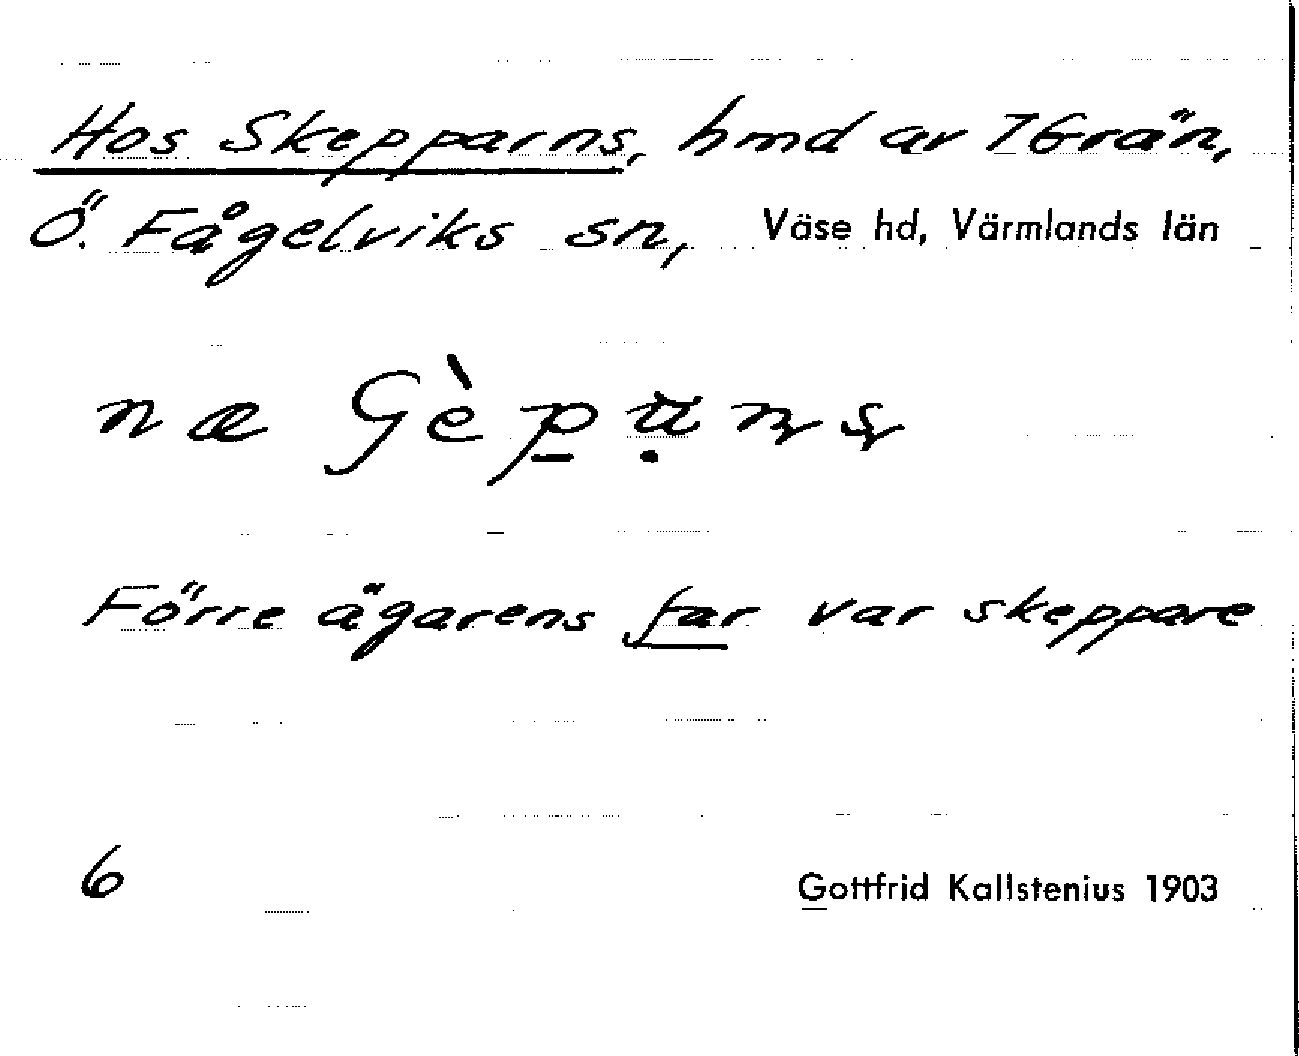 Hos Skepparns, hmd av 7 Grän,
Ö. Fågelviks sn, Väse hd, Värmlands län
Förre ägarens far var skeppare
6 Gottfrid Kallstenius 1903